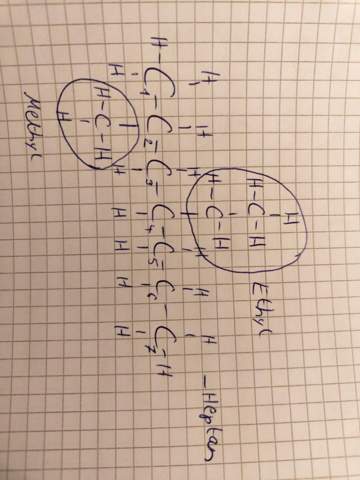 H
H-C-H Ethyl
H-C-H
H H H H H H -Heptan
H-C1-C2-C3-C4-C5-C6-C7-H
H H H H H H
H-C-H
H
Methyl